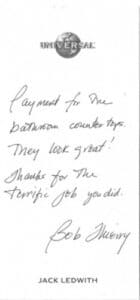 UNIVERSAL
Payment for the
bathroom counter tops.
They look great!
Thanks for the
terrific job you did.
Bob Thierry
JACK LEDWITH